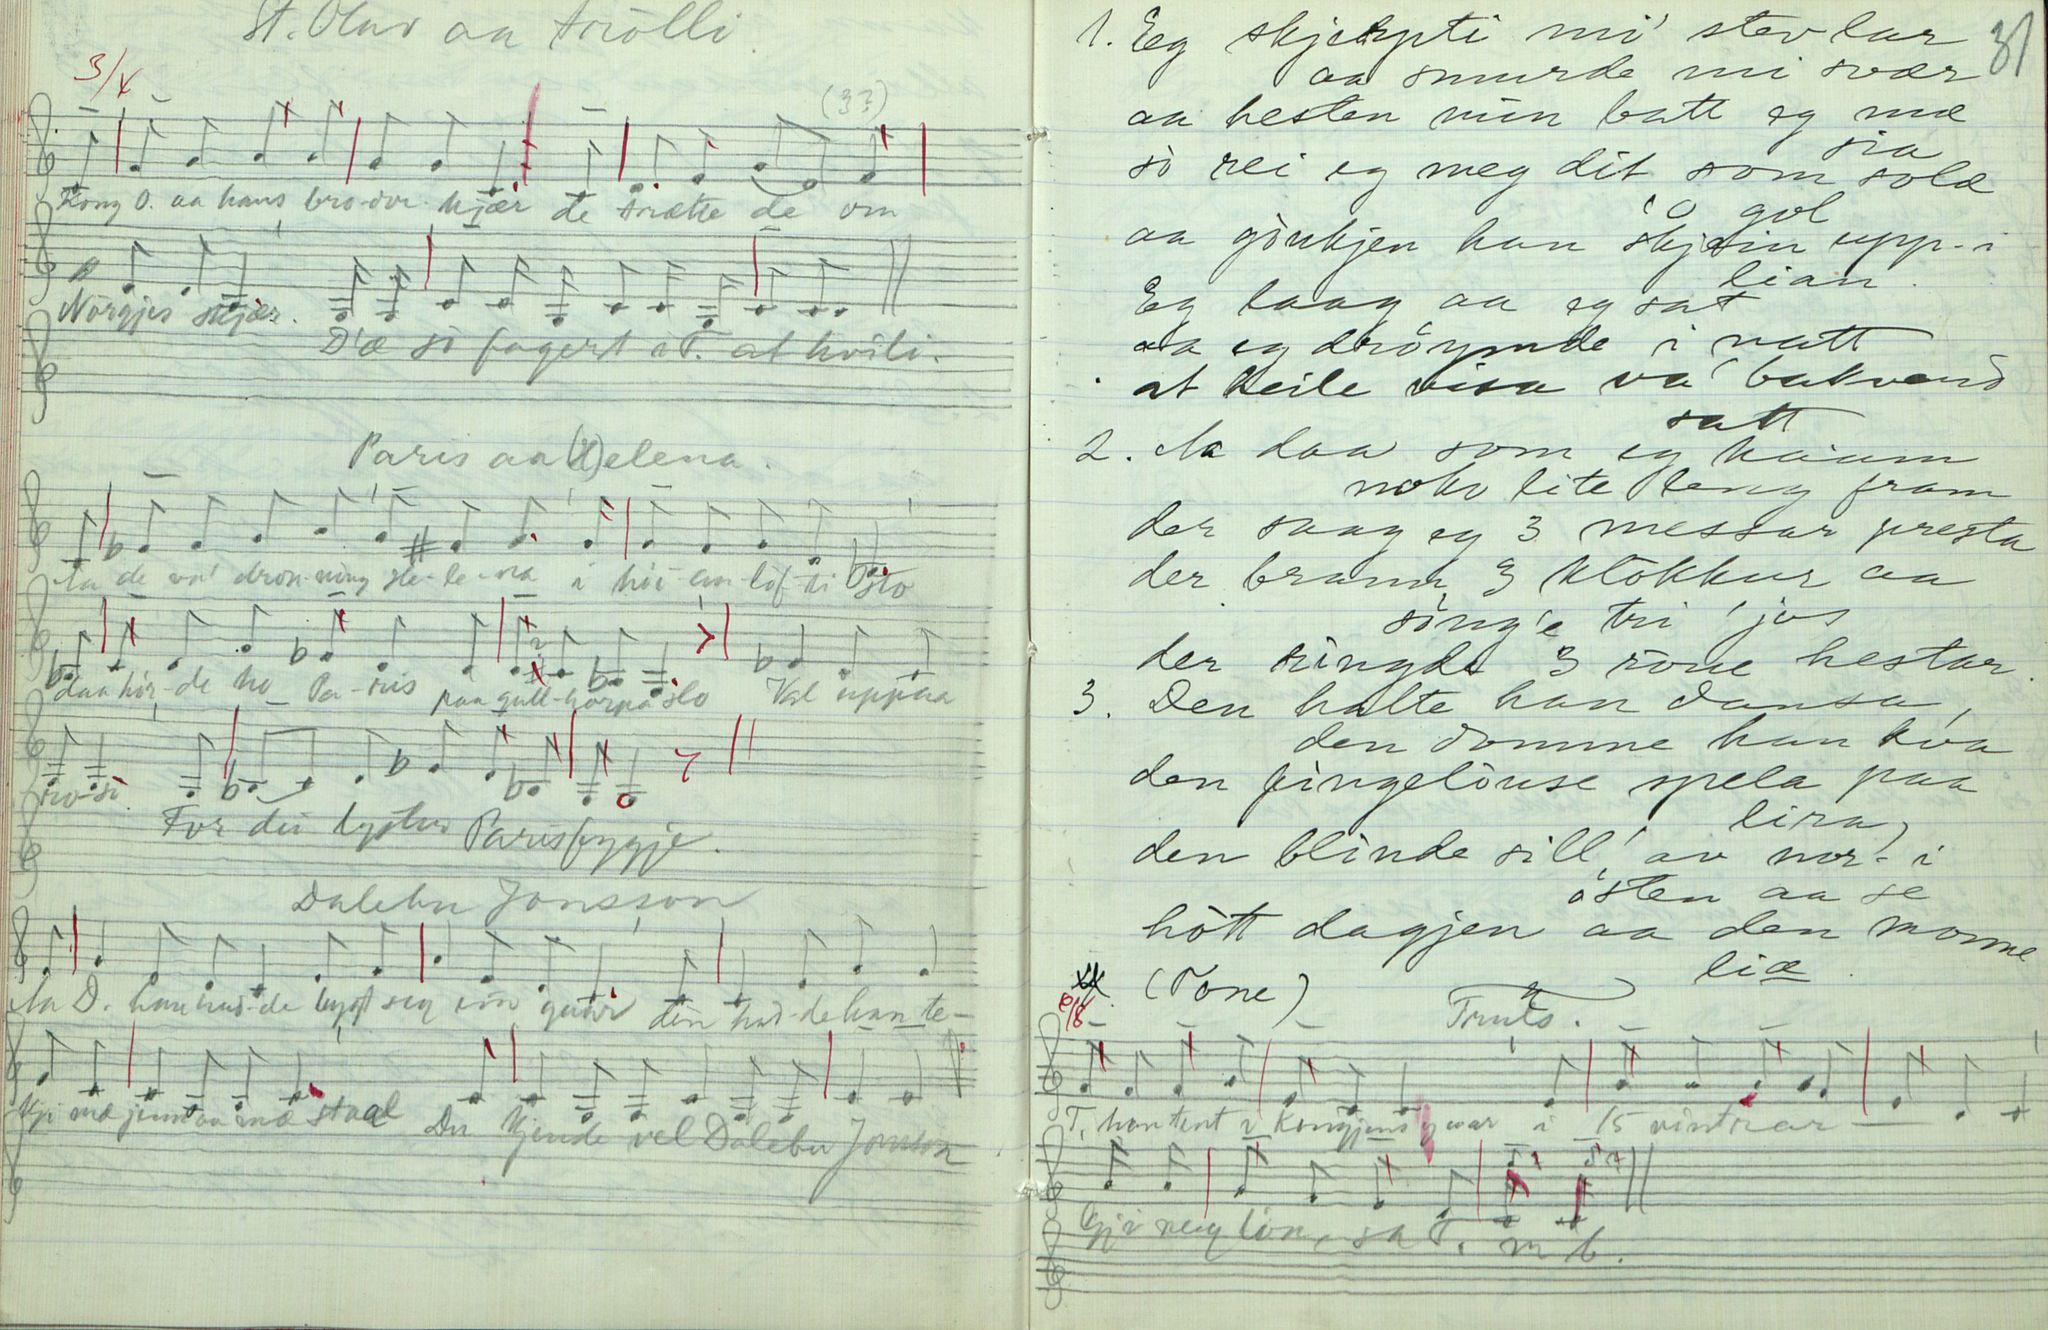 St. Olav aa trölli
3/4
(33)
Kong O. aa hans bro-dor kjær de trætte de om
Norgjes skjær.
D'æ so fagert i T. at hvili.
Paris aa (H)elena.
Aa de va' dron-ning He-le-na i höi-en-lof-ti sto
daa hör-de ho Pa-ris paa gull-harpa slo Væl uppaa
For dei lyster Paris byggje.
Dalebu Jonsson
Aa D. han had-de bygt seg ein gaar den had-de han te-
kji mæ jenn aa mæ staal Du kjende vel Dalebu Jonsson
31
1. Eg skjerpti mi' stevlar
aa smurde mi svær
aa hesten min batt eg mæ
sia
so rei eg meg dit som sola
gol
aa gòukjen han skjein upp-i
lian.
Eg laag aa eg sat
aa eg dröymde i natt
at heile visa va' bakvend
satt
2. Aa daa som eg kaam
noko lite leng fram
der saag eg 3 messar presta
der brann 3 klokkur aa
sònge tri jos
der ringde 3 röue hestar.
3. Den halte han dansa,
den domme han kva
den fingelöuse spela paa
lira,
den blinde sill' av nor- i
östen aa se
hòtt dagjen aa den monne
liæ.
(Tone)
Truls.
6/8
T. han tent i kongjens gaar i 15 vintrar
Gji meg lön, sa T. m b.